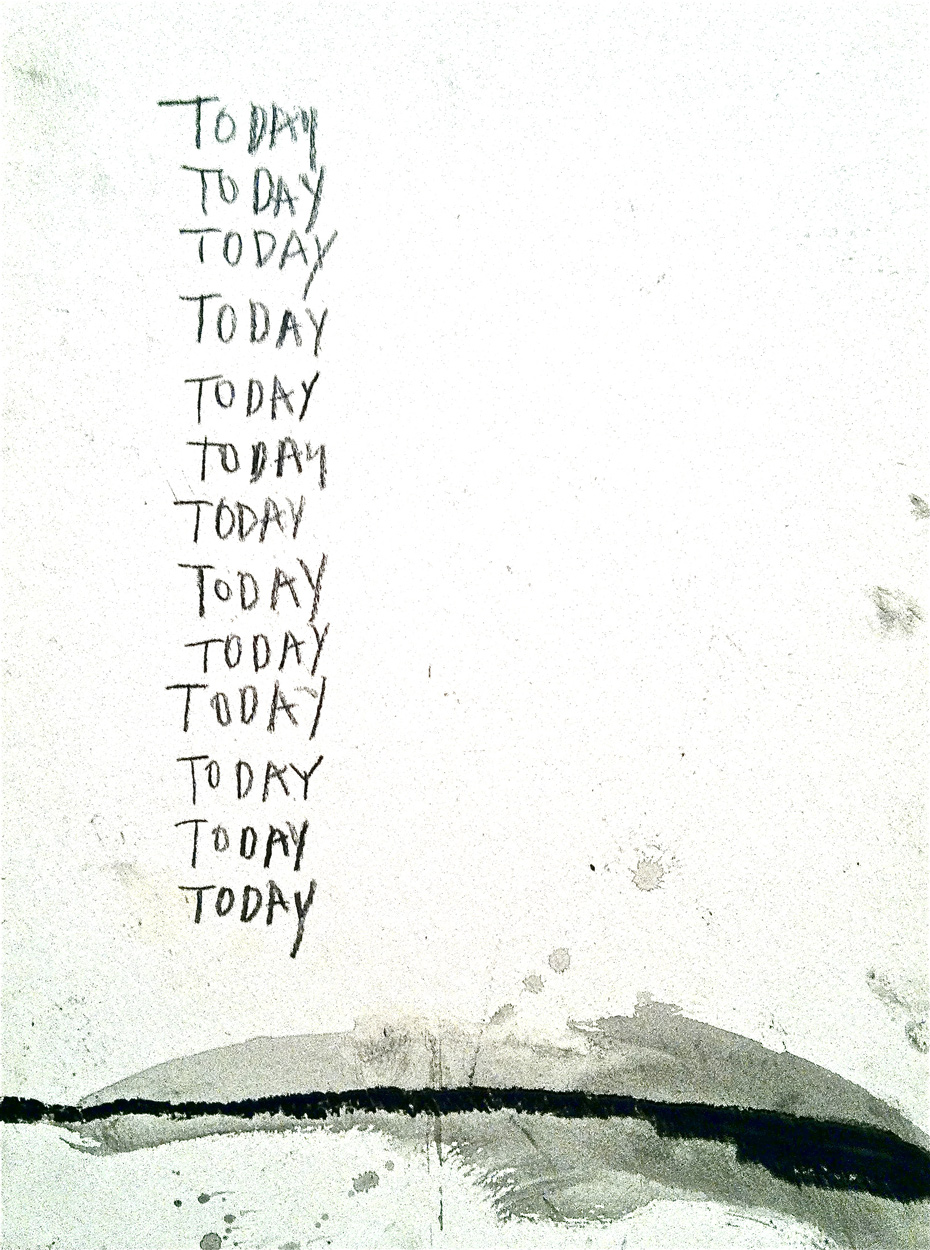 TODAY
TODAY
TODAY
TODAY
TODAY
TODAY
TODAY
TODAY
TODAY
TODAY
TODAY
TODAY
TODAY